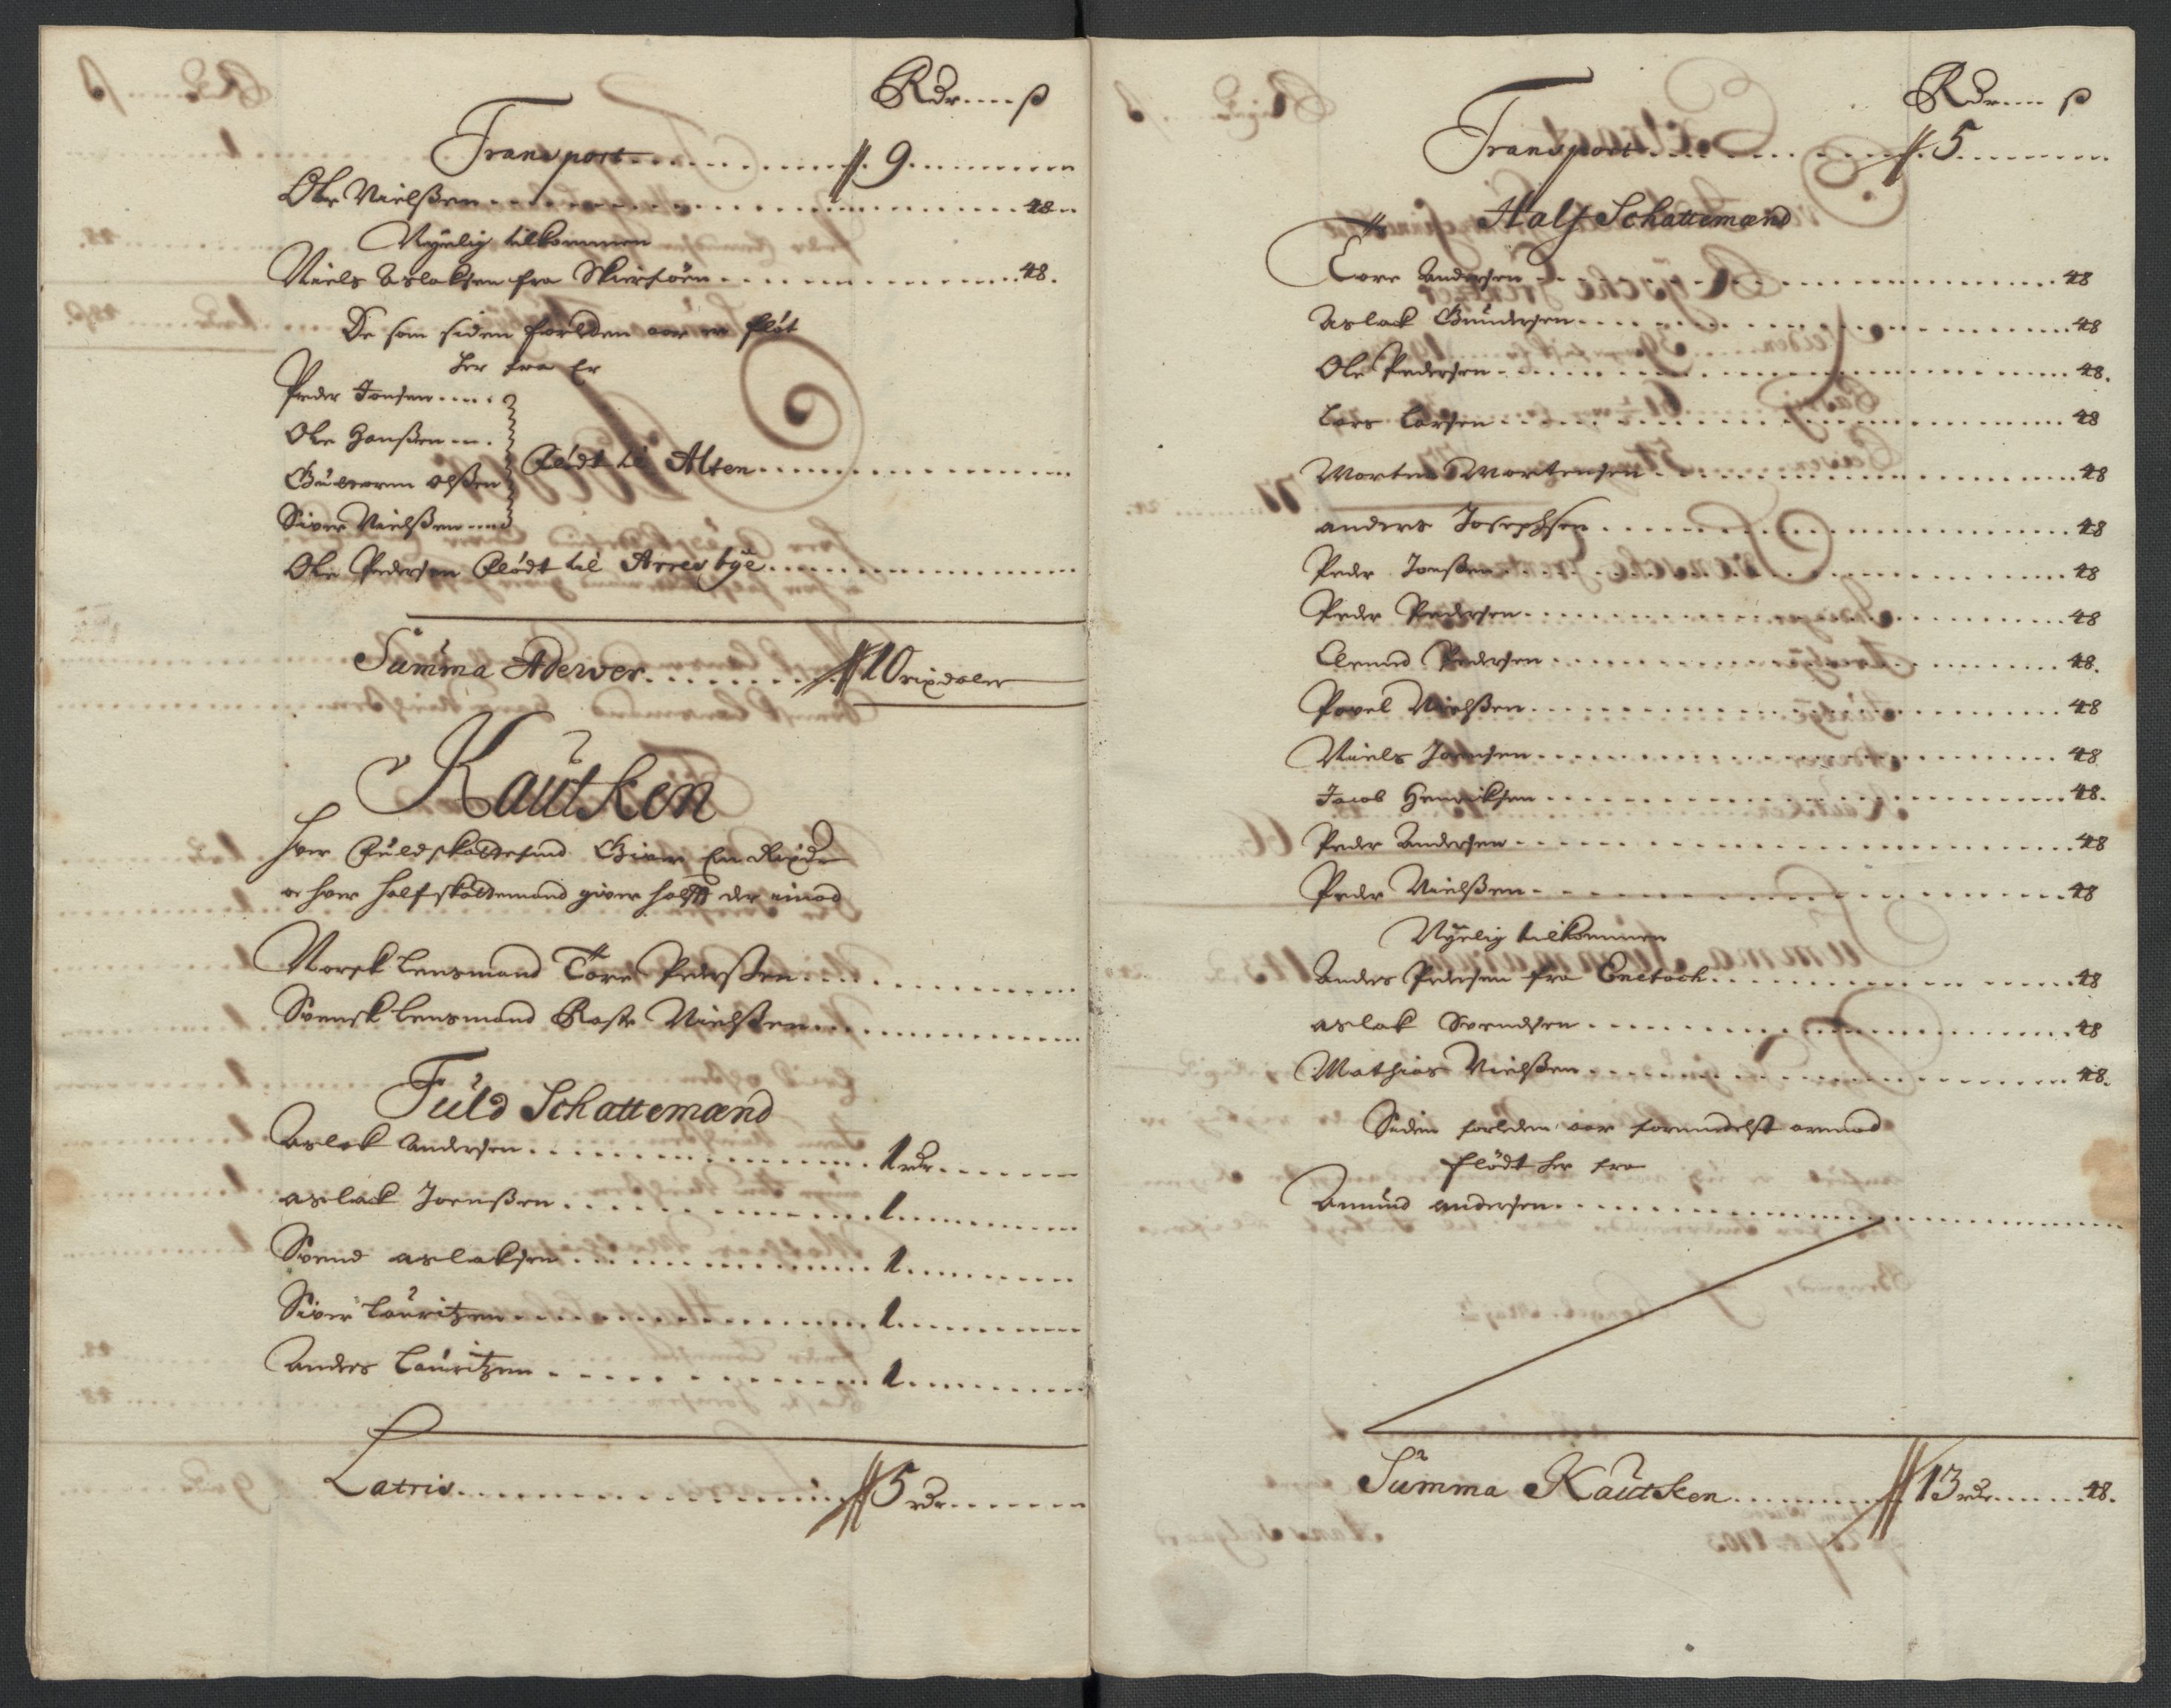 Rdr---- ß
Transport ........... 9 ..........
Ole Nielßen ........... 48
Nyelig tilkommen
Niels Aslaksen fra Skiersöen ........... 48.
De som siden forleden aar er fløt
her fra Er
Peder Jonsen ....
Ole Hanßen ....
Gudmorm Olßen
Siver Nielßen ....
flödt til Alten ...........
Ole Pedersen flödt til Arresbÿe ...........
Summa Aderver ........ 10 rixdaler
Kautken
Hver fuldskattemand Giver En Rixdr
oc hver halfskattemand giver halft der imod
Norsk Lensmand Tore Pederßen ...........
Svensk Lensmand Raste Nielßen ...........
Fuld Schattemænd
Aslak Andersen ........... 1 rdr .......
Aslak Joenßen ........... 1 ..........
Svend Aslaksen ........... 1 ..........
Siver Lauritzen ........... 1 ..........
Anders Lauritzen ........... 1 ..........
Latris ........... 5 rdr .......
Rdr---- ß
Transport ........... 5 ..........
Half Schattemænd
Tore Andersen ........... 48
Aslak Gundersen ........... 48
Ole Pedersen ........... 48.
Lars Larsen ........... 48
Morten Mortensen ........... 48
Anders Josephsen ........... 48
Peder Joenßen ........... 48
Peder Pedersen ........... 48
Clemed Pedersen ........... 48.
Povel Nielßen ........... 48
Niels Joensen ........... 48
Jacob Henriksen ........... 48.
Peder Andersen ........... 48
Peder Nielßen ........... 48
Nyelig tilkommen
Anders Pedersen fra Enetoch ........... 48
Aslak Svendsen ........... 48
Mathias Nielßen ........... 48.
Siden forleden aar formedelst armod
flödt her fra
Amund Andersen ...........
Summa Kautken ........... 13 rdr ....... 48.